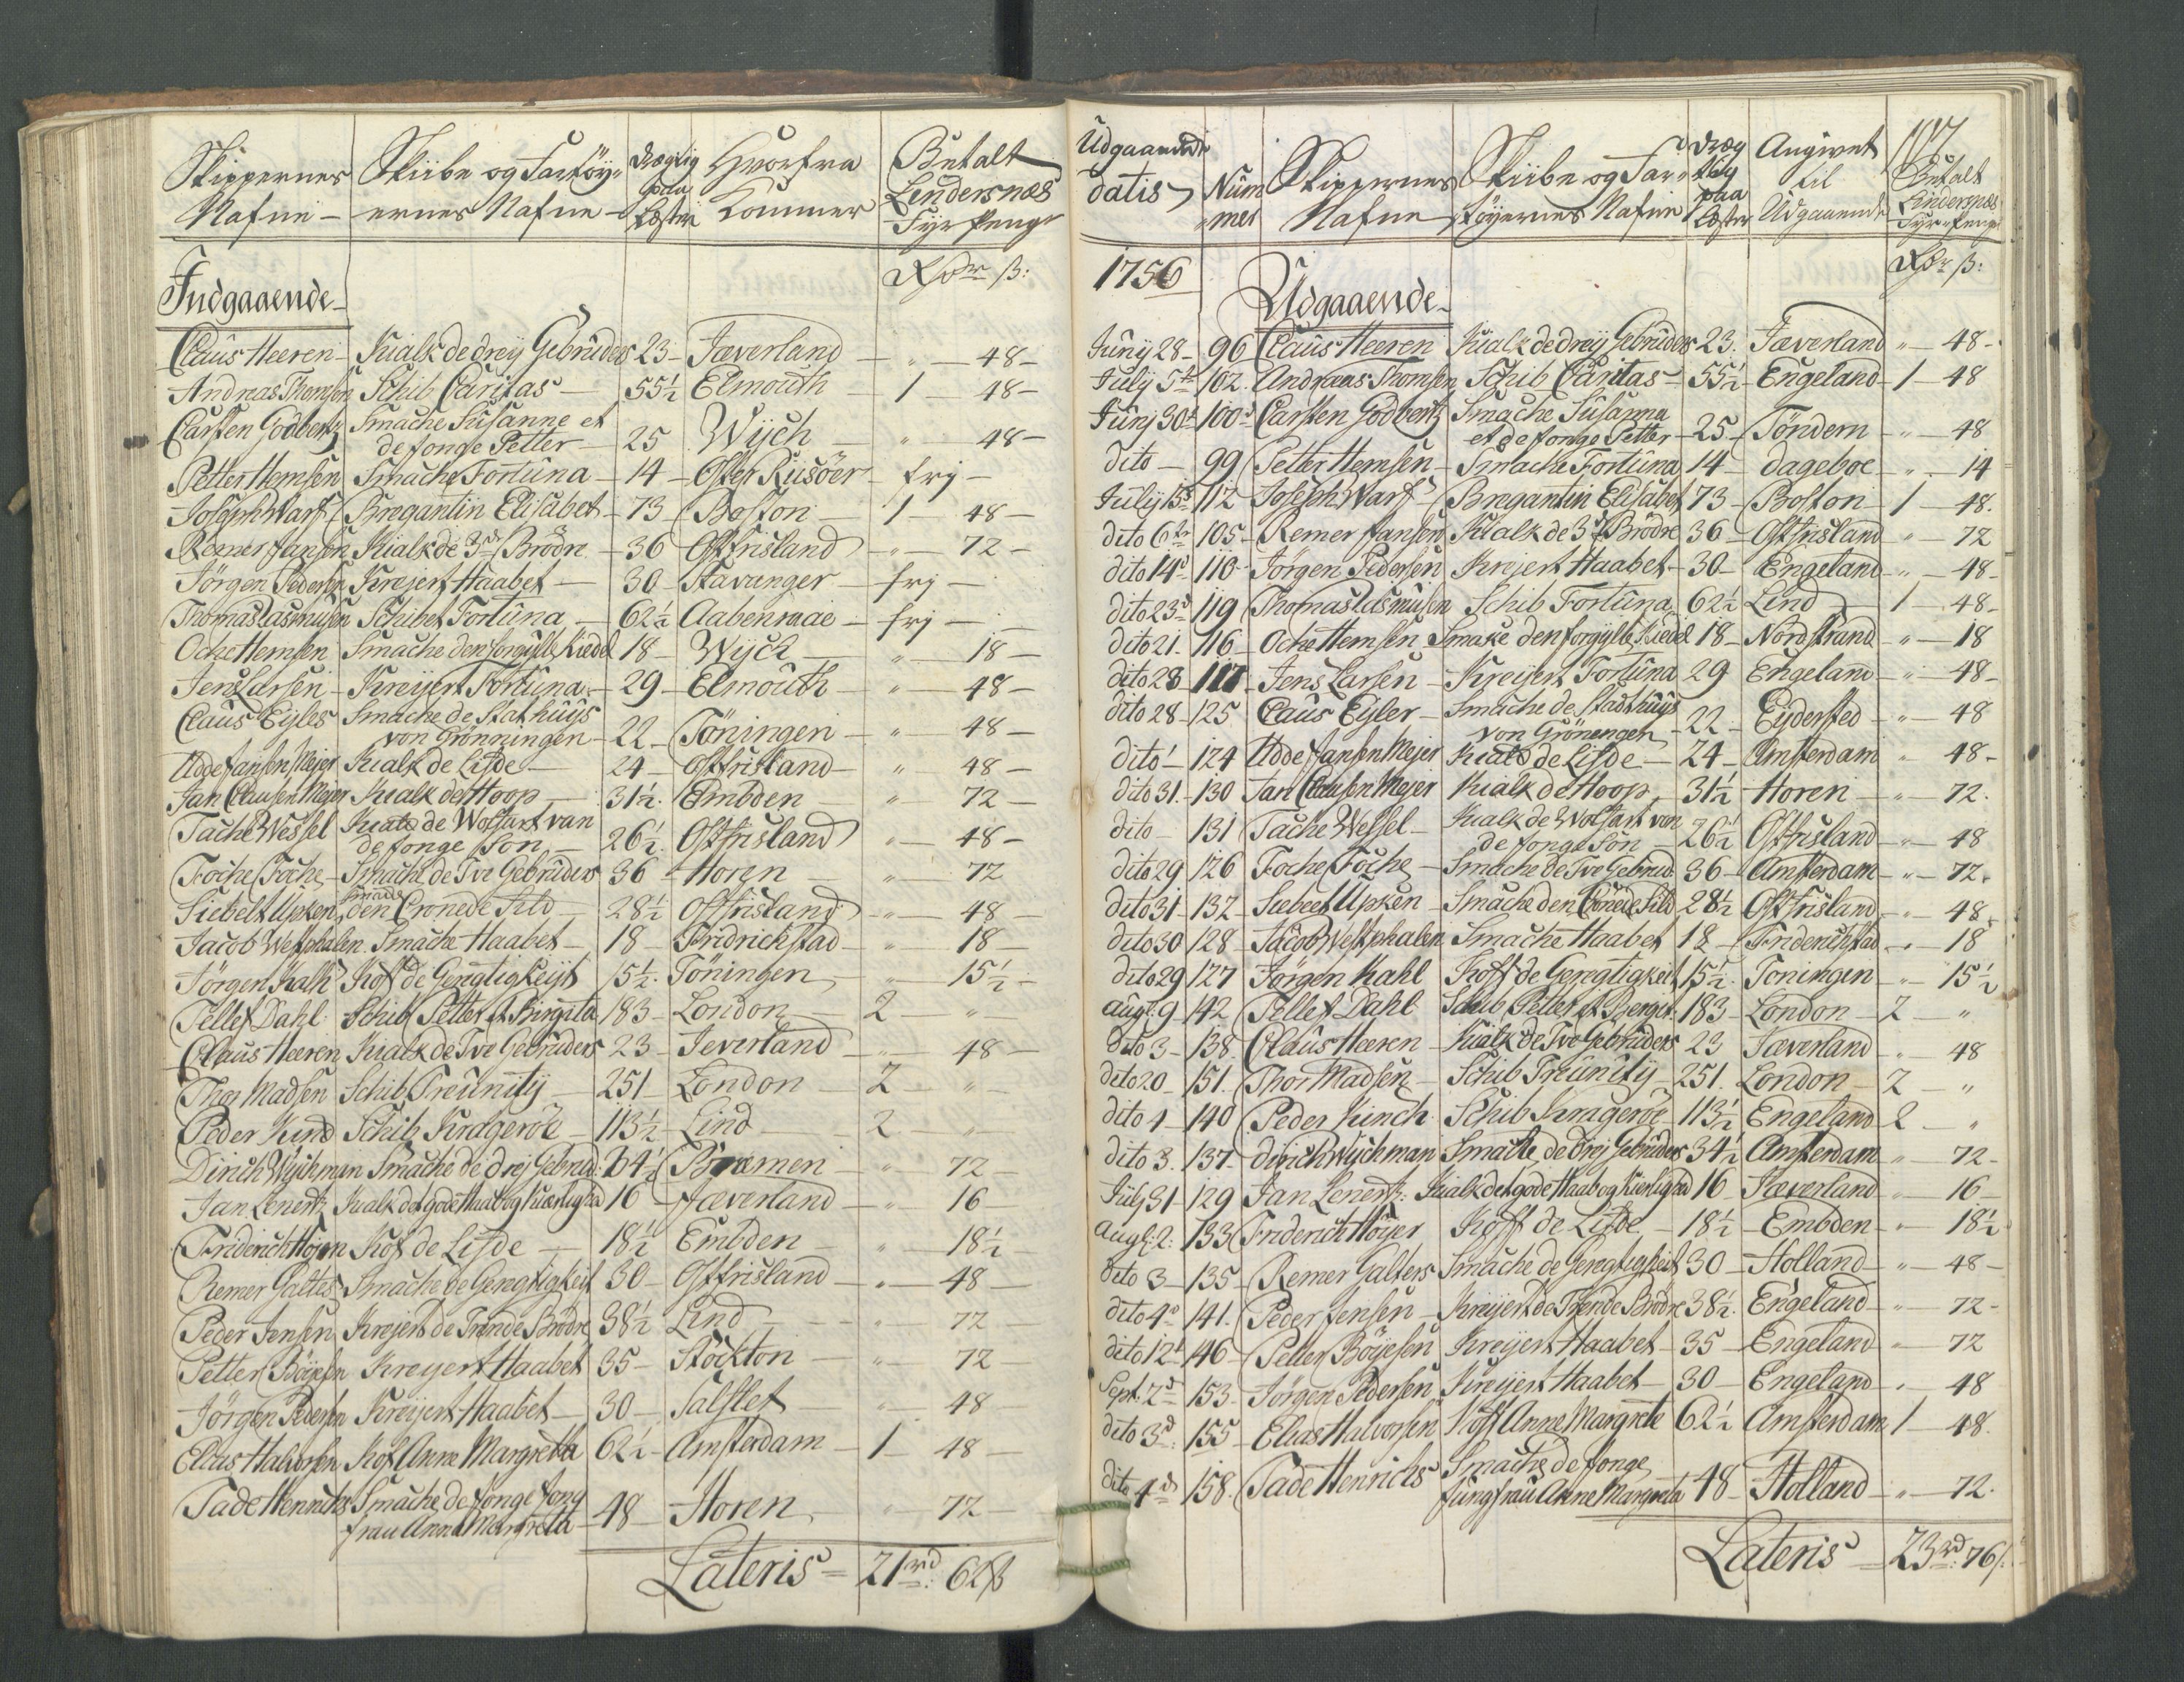 Skippernes Nafne – | Skiibe og Fartöyernes Nafne – | Drægtig paa Læster | Hvorfra Kommer | Betalt Lindersnæs Fyr Penge
Rdr ß:
Indgaaende –
Claus Heeren – Kialk de drey Gebrüders 23 – Jæverland – " – 48 –
Andreas Thomsen Schib Caritas – 55½ Elmouth – 1 – 48 –
Carsten Godbertz Smache Susanne et
de jonge Petter – 25 Wÿch – " – 48 –
Petter Hemsen Smache Fortuna – 14 – Oster Rusöer – frj –
Joseph Warf Bregantin Elisabet – 73 – Boston – 1 – 48 –
Remer Jansen Kialk de 3de Brödre – 36 Ostfrisland – " – 72 –
Jörgen Pedersen Kreyert Haabet – 30 – Stavanger – frj –
Thomas Lasmusen Schibet Fortuna – 62½ Aabenraae – frj –
Oche Hemsen Smache den forgylte Kiedel 18 – Wÿch – " – 18 –
Jens Larsen – Kreyert Fortuna – 29 – Elmouth – " – 48 –
Claus Eyles Smache de Stathuÿs
von Grönningen – 22 – Töningen – " – 48 –
Udde Jansen Mejer Kialk de Lisde – 24 – Ostfrisland – " – 48 –
Jan Clausen Mejer Kialk de Hoop – 31½ Embden – " 72 –
Tache Wessel Kialk de Wolfart van
de jonge Son – 26½ Ostfrisland – " – 48 –
Foche Foche – Smache de Tvo Gebrüders 36 – Horen – " 72
Siebelt Upken Smache den Cronede Sild – 28½ Ostfrisland – " 48 –
Jacob Westphalen Smache Haabet – 18 – Fridrichstad – " 18
Jörgen Kalh Koff de Geregtigkeyt 15½ Töningen – " 15½ –
Tellef Dahl Schib Petter et Birgita 183 – London – 2 – "
Claus Heeren Kialk de Tvo Gebrüders 23 – Jeverland – " 48 –
Thor Madsen Schib Treunitÿ – 251 – London – 2 – "
Peder Kind Schib Krageröe – 113½ – Lind – 2 – "
Dirich Wychman Smache de drej Gebrud. 34½ Bremen – " 72 –
Jan Lenertz Kialk det gode Haab og Kiærlighed 16 – Jæverland – " 16 –
Friderich Höjer Kof de Lisde – 18½ Embden – " 18½
Remer Galtes Smache de Geregtigkeit 30 – Ostfrisland – " 48 –
Peder Jensen Krejert de Trende Brödre 38½ Lind – " 72
Petter Böyesen Kreyert Haabet 35 – Stockton – " 72
Jörgen Pedersen Kreyert Haabet – 30 – Salflet – " 48
Elias Halvorsen Kof Anne Margretha 62½ – Amsterdam – 1 – 48 –
Tade Henrichs Smache de jonge Jong
frau Anna Margreta – 48 – Horen – " 72 –
Lateris = 21rd: 62ß
Udgaaende datis | Nummer | Skippernes Nafne | Skiibe og Fartöyernes Nafne | Drægtig paa Læster | Angivet til Udgaaende | Betalt Lindersnæs Fyr-Penge
1756 Rdr ß:
Udgaaende –
Junÿ 28 – 96 Claus Heeren Kialk de dreÿ Gebrüders 23. Jæverland " – 48 –
July 5t 102 Andreas Thomsen Schib Caritas – 55½ – Engeland – 1 – 48
Junÿ 30t 100 Carsten Godbertz Smache Susanna
et de jonge Petter – 25 – Töndern – " – 48
dito – 99 Petter Hemsen – Smache Fortuna 14 – Dageboe – " – 14
Julÿ 15 112 Joseph Warf Bregantin Elisabet 73 – Boston – 1 – 48.
dito 6te 105 – Remer Jansen Kialk de 3de Brödre 36 – Ostfrisland – " – 72
dito 14d 110 Jörgen Pedersen Krejert Haabet – 30 – Engeland – " – 48 –
dito 23d 119 Thomas Lasmusen Schib Fortuna 62½ Lind – 1 – 48 –
dito 21. 116 Oche Hemsen Smake den forgylte Kiedel 18 – Nordstrand – " – 18
dito 28 117 – Jens Larsen – Kreyert Fortuna 29 Engeland – " – 48 –
dito 28 – 125 Claus Eyler – Smache de Stadthuys
von Gröningen – 22 – Eydersted – " – 48
dito – 124 Udde Jansen Mejer Kialk de Lisde – 24 – Amsterdam " 48 –
dito 31 – 130 Jan Clausen Mejer Kialk de Hoop 31½ Horen – " – 72.
dito – 131 Tache Wessel – Kialk de Wolfart van
de jonge Son – 26½ Ostfrisland – " – 48
dito 29 126 Foche Foche – Smache de Tvo Gebrud. 36 – Amsterdam – " – 72.
dito 31 132 – Siebelt Upken – Smache den Cronede Sild 28½ Ostfrisland – " – 48.
dito 30 128 – Jacob Westphalen Smache Haabet 18 – Friderichstad – " – 18
dito 29 127 Jörgen Kahl Koff de Geregtigkeit 15½ Toningen – " – 15½
Augt: 9 142 Tellef Dahl Schib Petter et Berget. 183 – London – 2 – "
dito 3 – 138. Claus Heeren – Kialk de Tvo Gebrüders 23 Jæverland – " – 48
dito 20 – 151. Thor Madsen – Schib Treunitÿ – 251. London – 2 – "
dito 4 – 140 Peder Kinch Schib Krageröe 113½ Engeland 2 – "
dito 3. 137 – Dirich Wychman Smache de drej Gebrüders 34½ Amsterdam " – 72 –
July 31 129 Jan Lenertz: Kialk det gode Haab og Kierlighed 16 – Jæverland – " 16 –
Augt: 2: 133 Friderich Höyer Koff de Lisde – 18½ – Embden – " – 18½
dito 3 – 135 – Remer Galters Smache de Geregtigkeit 30 – Holland – " – 48 –
dito 4d 141. Peder Jensen – Kreyert de Trende Brödre 38½ Engeland – " – 72 –
dito 12t 146 – Petter Böyesen Kreyert Haabet – 35 – Engeland – " 72
Sept. 2d 153 – Jörgen Pedersen Kreyert Haabet – 30 – Engeland – " – 48
dito 3d 155 – Elias Halvorsen Koff Anne Margrete 62½ Amsterdam 1 – 48.
dito 4d 158. Tade Henrichs Smache de jonge
Jungfrau Anne Margreta 48 – Holland – " – 72.
Lateris = 23rd: 76ß.